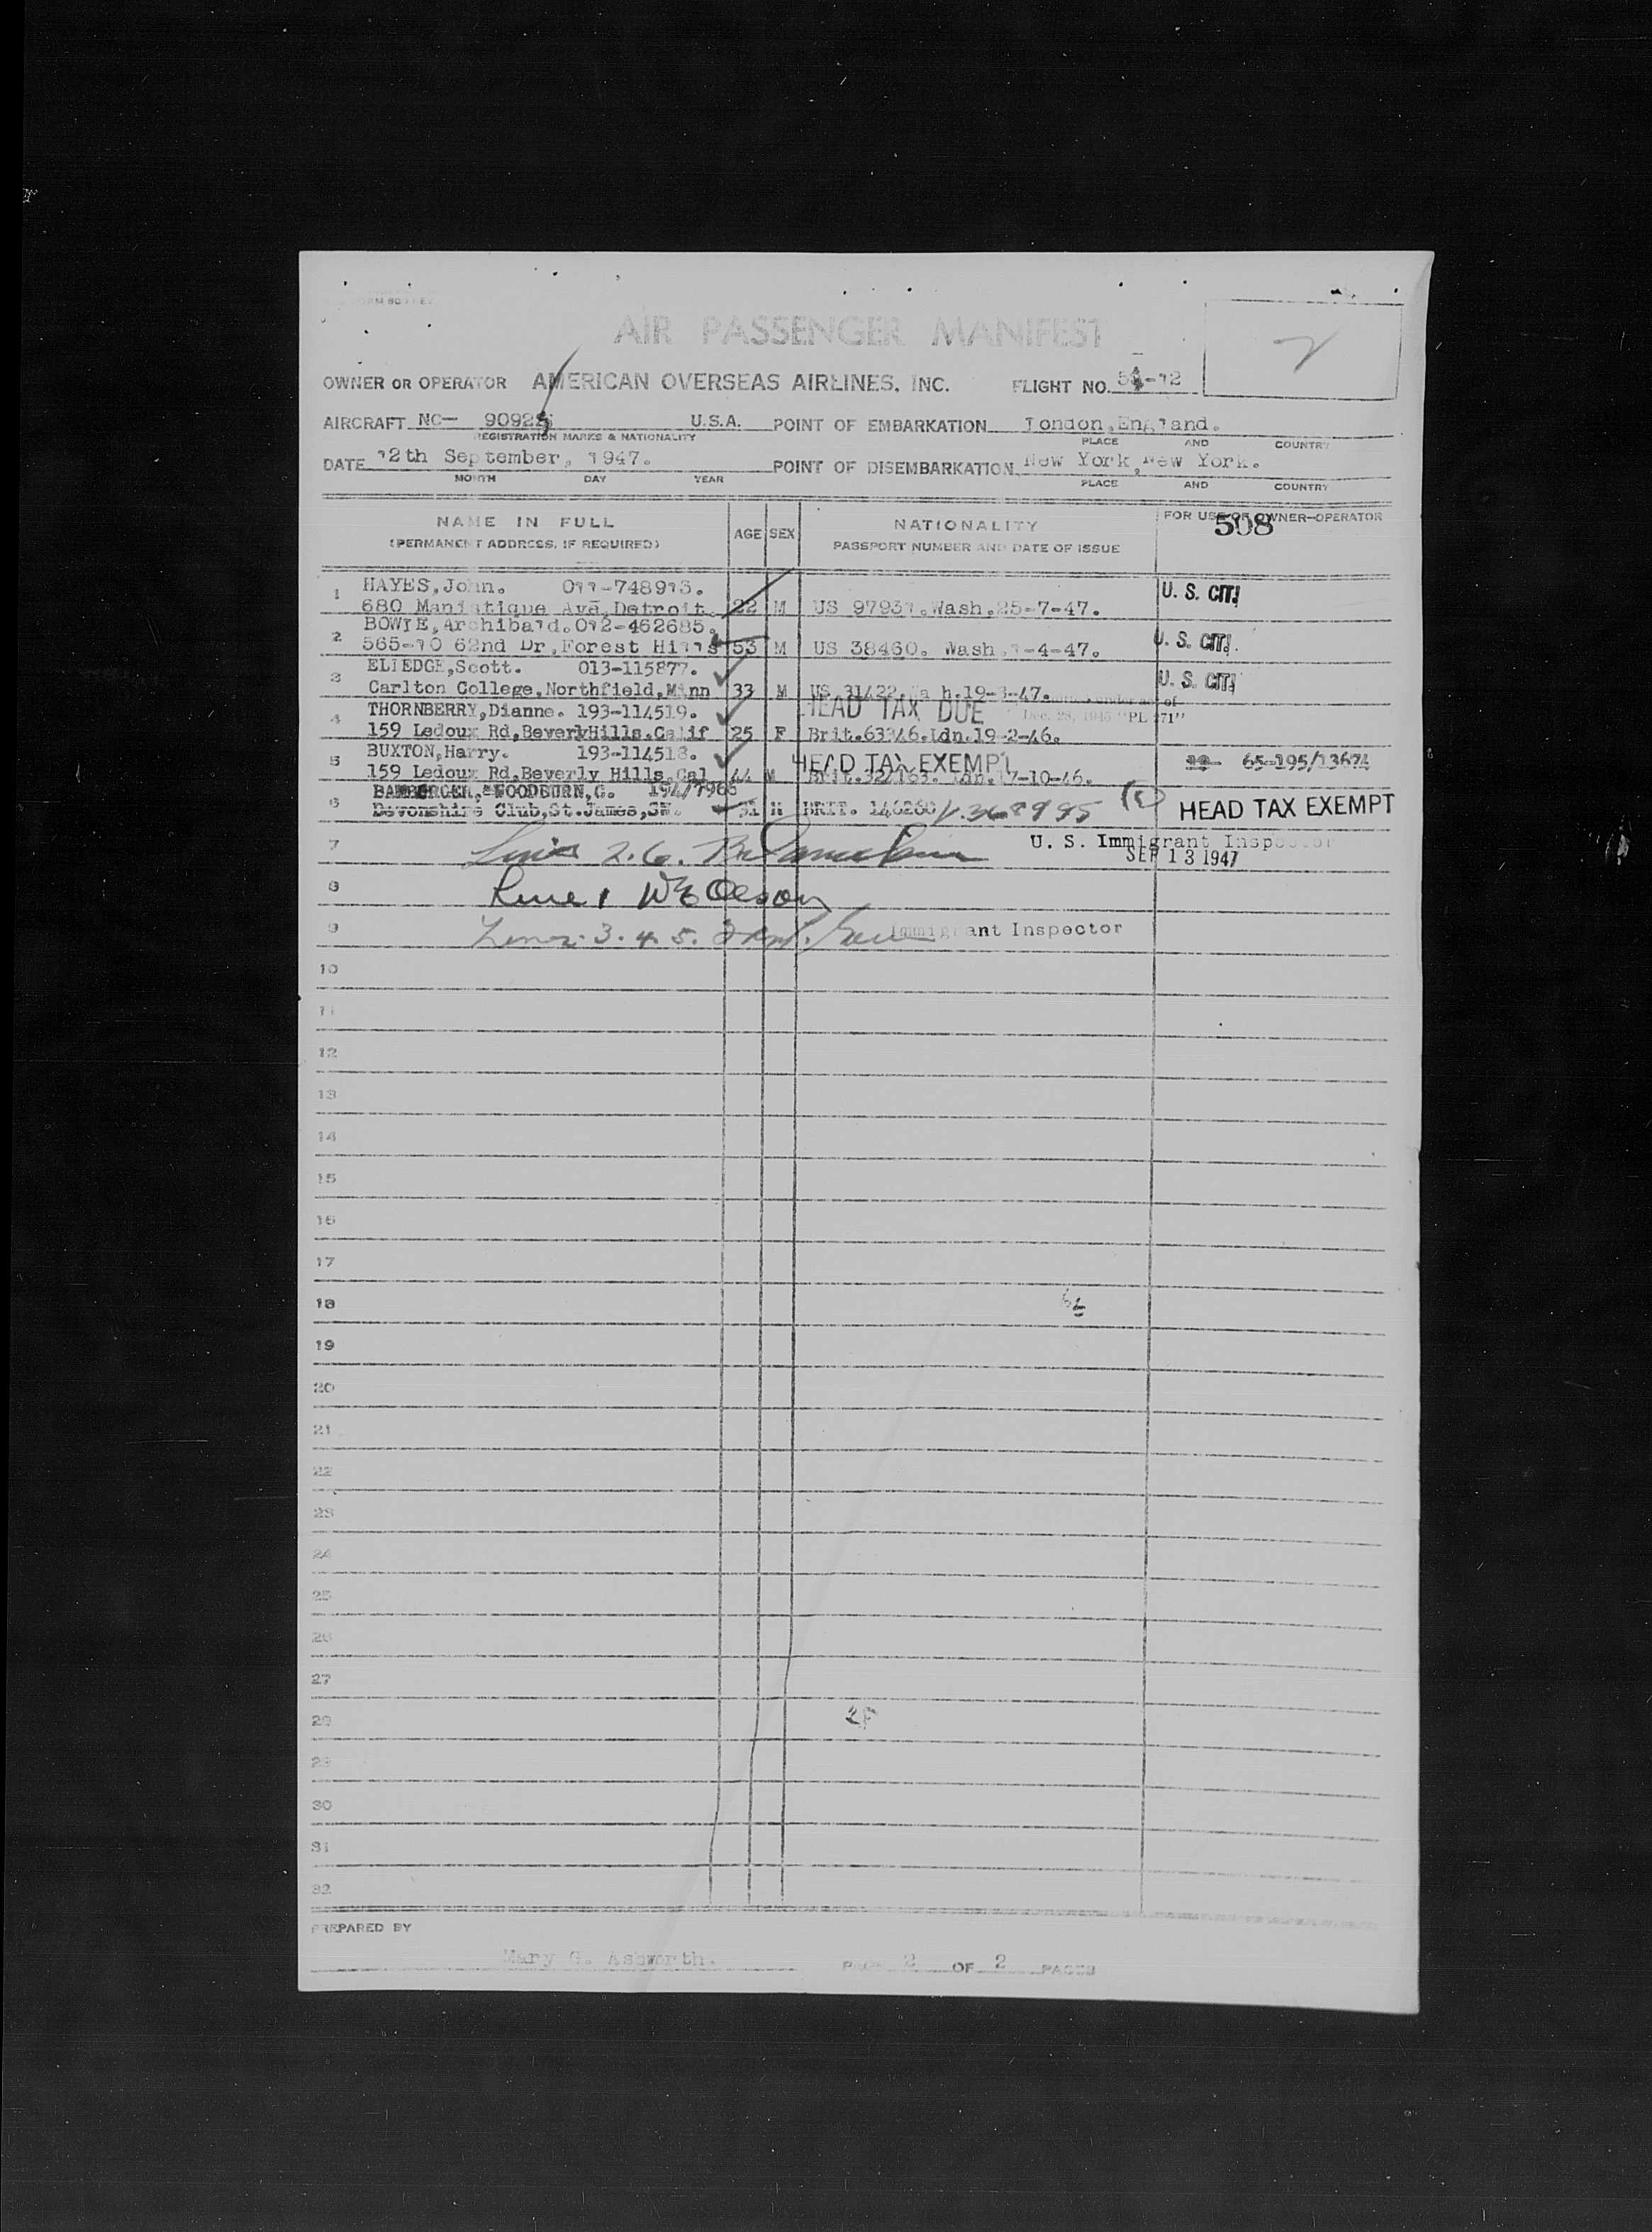 AIR PASSENGER MANIFEST
2
OWNER OR OPERATOR AMERICAN OVERSEAS AIRLINES, INC. FLIGHT NO.
AIRCRAFT NC- U.S.A. POINT OF EMBARKATION London, England.
REGISTRATION MARKS & NATIONALITY PLACE AND COUNTRY
DATE 12th September, 1947. POINT OF DISEMBARKATION New York, New York.
MONTH DAY YEAR PLACE AND COUNTRY
NAME IN FULL AGE SEX NATIONALITY FOR USE OF OWNER-OPERATOR
508
(PERMANENT ADDRESS, IF REQUIRED) PASSPORT NUMBER AND DATE OF ISSUE
1 HAYES, John. 011-748913. U. S. CIT.
680 Manistique Ave, Detroit. 22 M US 97931. Wash. 25-7-47.
2 BOWIE, Archibald. 012-462685. U. S. CIT.
565-10 62nd Dr, Forest Hills 53 M US 38460. Wash. 1-4-47.
3 ELLEDGE, Scott. 013-115877. U. S. CIT.
Carlton College, Northfield, Minn 33 M US 31422. Wash. 19-3-47.
4 THORNBERRY, Dianne. 193-114519. HEAD TAX DUE Dec. 28, 1945 "PL 271"
159 Ledoux Rd, BeverlyHills, Calif 25 F Brit. 63346. Ldn. 19-2-46.
5 BUXTON, Harry. 193-114518. HEAD TAX EXEMPT 65-195/13674
159 Ledoux Rd, Beverly Hills, Cal 44 M Brit. Ldn. 17-10-46.
6 BAMBERGER, WOODBURN, G. 194/7966
Devonshire Club, St. James, SW. 31 M BRIT. 140260 V. 368995 HEAD TAX EXEMPT
7 Lines 2. 6. U. S. Immigrant Inspector
SEP 13 1947
8 Line 1 W E Olson
9 Lines 3. 4. 5. Immigrant Inspector
10
11
12
13
14
15
16
17
18
19
20
21
22
23
24
25
26
27
28
29
30
31
32
PREPARED BY
Mary G. Ashworth. PAGE 2 OF 2 PAGES